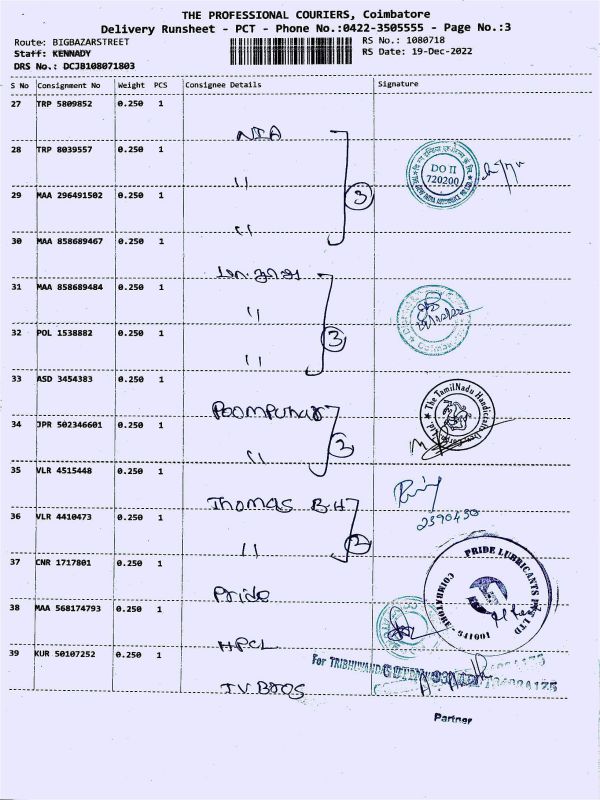 THE PROFESSIONAL COURIERS, Coimbatore
Delivery Runsheet - PCT - Phone No.:0422-3505555 - Page No.:3
Route: BIGBAZARSTREET
RS No.: 1080718
Staff: KENNADY
RS Date: 19-Dec-2022
DRS No.: DCJB108071803
S No Consignment No Weight PCS Consignee Details Signature
27 TRP 5809852 0.250 1
NIA
28 TRP 8039557 0.250 1
DO II
720200
"
29 MAA 296491502 0.250 1
3
"
30 MAA 858689467 0.250 1
31 MAA 858689484 0.250 1
"
32 POL 1538882 0.250 1
3
"
33 ASD 3454383 0.250 1
Poompuhar
The TamilNadu Handicrafts
34 JPR 502346601 0.250 1
2
"
35 VLR 4515448 0.250 1
Thomas B.H
2390430
36 VLR 4410473 0.250 1
2
"
37 CNR 1717801 0.250 1
PRIDE LUBRICANTS PVT LTD
COIMBATORE - 641001
Pride
38 MAA 568174793 0.250 1
HPCL
39 KUR 50107252 0.250 1
T.V.BROS
Partner